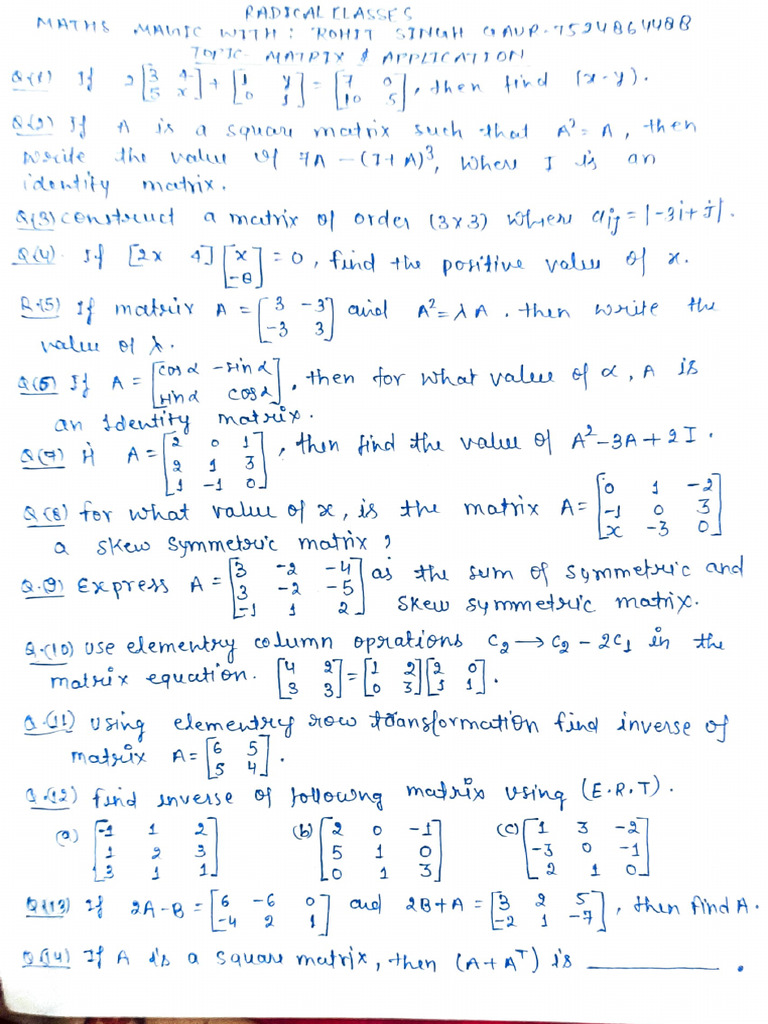 RADICAL CLASSES
MATHS MANIC WITH: ROHIT SINGH GAUR-7524864488
TOPIC- MATRIX & APPLICATION
Q.(1) If 2[3 4; 5 x] + [1 y; 0 1] = [7 0; 10 5], then find (x-y).
Q.(2) If A is a square matrix such that A² = A, then
write the value of 7A - (I+A)³, where I is an
identity matrix.
Q.(3) construct a matrix of order (3x3) where aij = |-3i+j|.
Q.(4). If [2x 4][x; -8] = 0, find the positive value of x.
Q.(5) If matrix A = [3 -3; -3 3] and A² = λA. then write the
value of λ.
Q.(6) If A = [cosα -sinα; sinα cosα], then for what value of α, A is
an identity matrix.
Q.(7) If A = [2 0 1; 2 1 3; 1 -1 0], then find the value of A²-3A+2I.
Q.(8) for what value of x, is the matrix A = [0 1 -2; -1 0 3; x -3 0]
a skew symmetric matrix?
Q.(9) Express A = [3 -2 -4; 3 -2 -5; -1 1 2] as the sum of symmetric and
skew symmetric matrix.
Q.(10) use elementry column oprations C₂ → C₂ - 2C₁ in the
matrix equation. [4 2; 3 3] = [1 2; 0 3][2 0; 1 1].
Q.(11) using elementry row transformation find inverse of
matrix A = [6 5; 5 4].
Q.(12) find inverse of followng matrix using (E.R.T).
(a) [-1 1 2; 1 2 3; 3 1 1] (b) [2 0 -1; 5 1 0; 0 1 3] (c) [1 3 -2; -3 0 -1; 2 1 0]
Q.(13) If 2A-B = [6 -6 0; -4 2 1] and 2B+A = [3 2 5; -2 1 -7], then find A.
Q.(14) If A is a square matrix, then (A+Aᵀ) is ________.